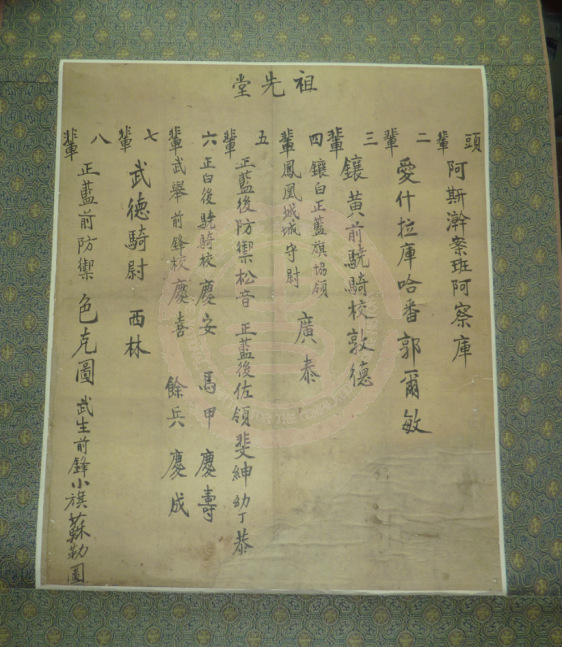 祖先堂
頭輩 阿斯瀚案班阿察庫
二輩 愛什拉庫哈番郭爾敏
三輩 鑲黃前驍騎校敦德
四輩 鑲白正藍旗協領 鳳凰城城守尉 廣泰
五輩 正藍後防禦松音 正藍後佐領斐紳 幼丁恭
六輩 正白後驍騎校慶安 馬甲 慶壽
武舉前鋒校慶喜 餘兵 慶成
七輩 武德騎尉 西林
八輩 正藍前防禦 色克圖 武生前鋒小旗蘇勒圖